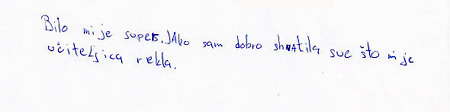 Bilo mi je super. JAko sam dobro shvatila sve što mi je
učiteljica rekla.